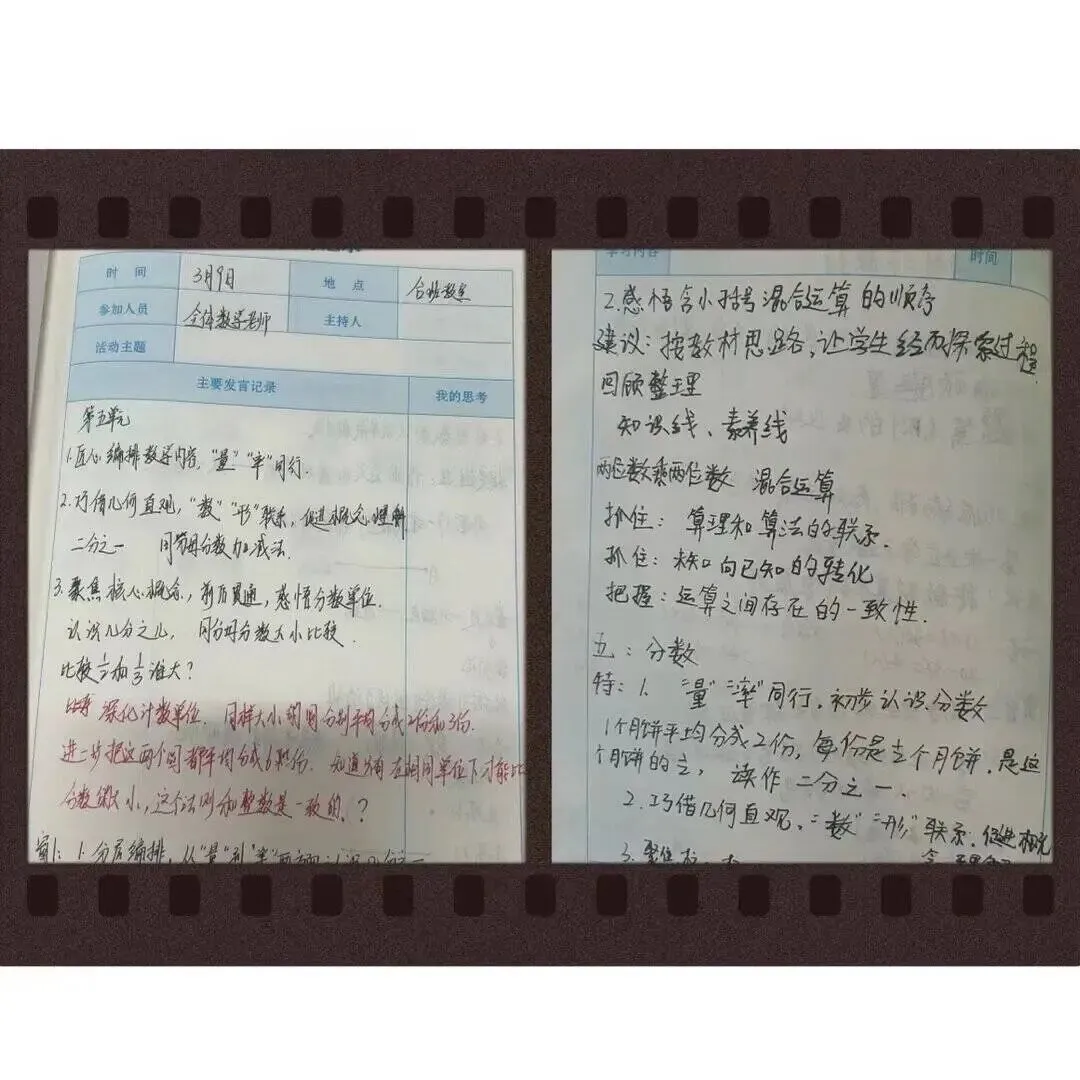 时 间 3月9日 地 点 合班教室
参加人员 全体数学老师 主持人
活动主题
主要发言记录 我的思考
第五单元
1.匠心编排教学内容,"量""率"同行.
2.巧借几何直观,"数""形"联系,促进概念理解
二分之一 同分母分数加减法.
3.聚焦核心概念,前后贯通,感悟分数单位.
认识几分之几, 同分母分数大小比较.
比较1/2和1/3谁大?
深化计数单位. 同样大小的圆分别平均分成2份和3份.
进一步把这两个圆都平均分成6份. 知道 在相同单位下才能比
分数 大小,这个法则和整数是一致的.?
1.分层编排,从"量"到"率"两方面认识几分之一
学习内容 时间
2.感悟含小括号混合运算的顺序
建议:按教材思路,让学生经历探索过程.
回顾整理
知识线、素养线
两位数乘两位数 混合运算
抓住:算理和算法的联系.
抓住:未知向已知的转化
把握:运算之间存在的一致性.
五:分数
特:1."量""率"同行,初步认识分数
1个月饼平均分成2份,每份是1/2个月饼.是这
个月饼的1/2, 读作 二分之一.
2.巧借几何直观."数""形"联系.促进概
念理解
3.聚焦